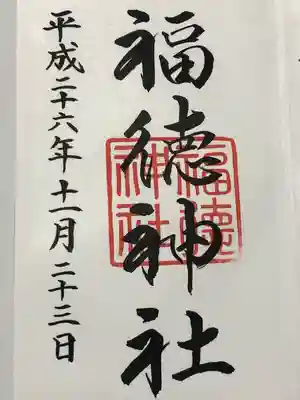 福徳神社
福德神社
平成二十六年十一月二十三日